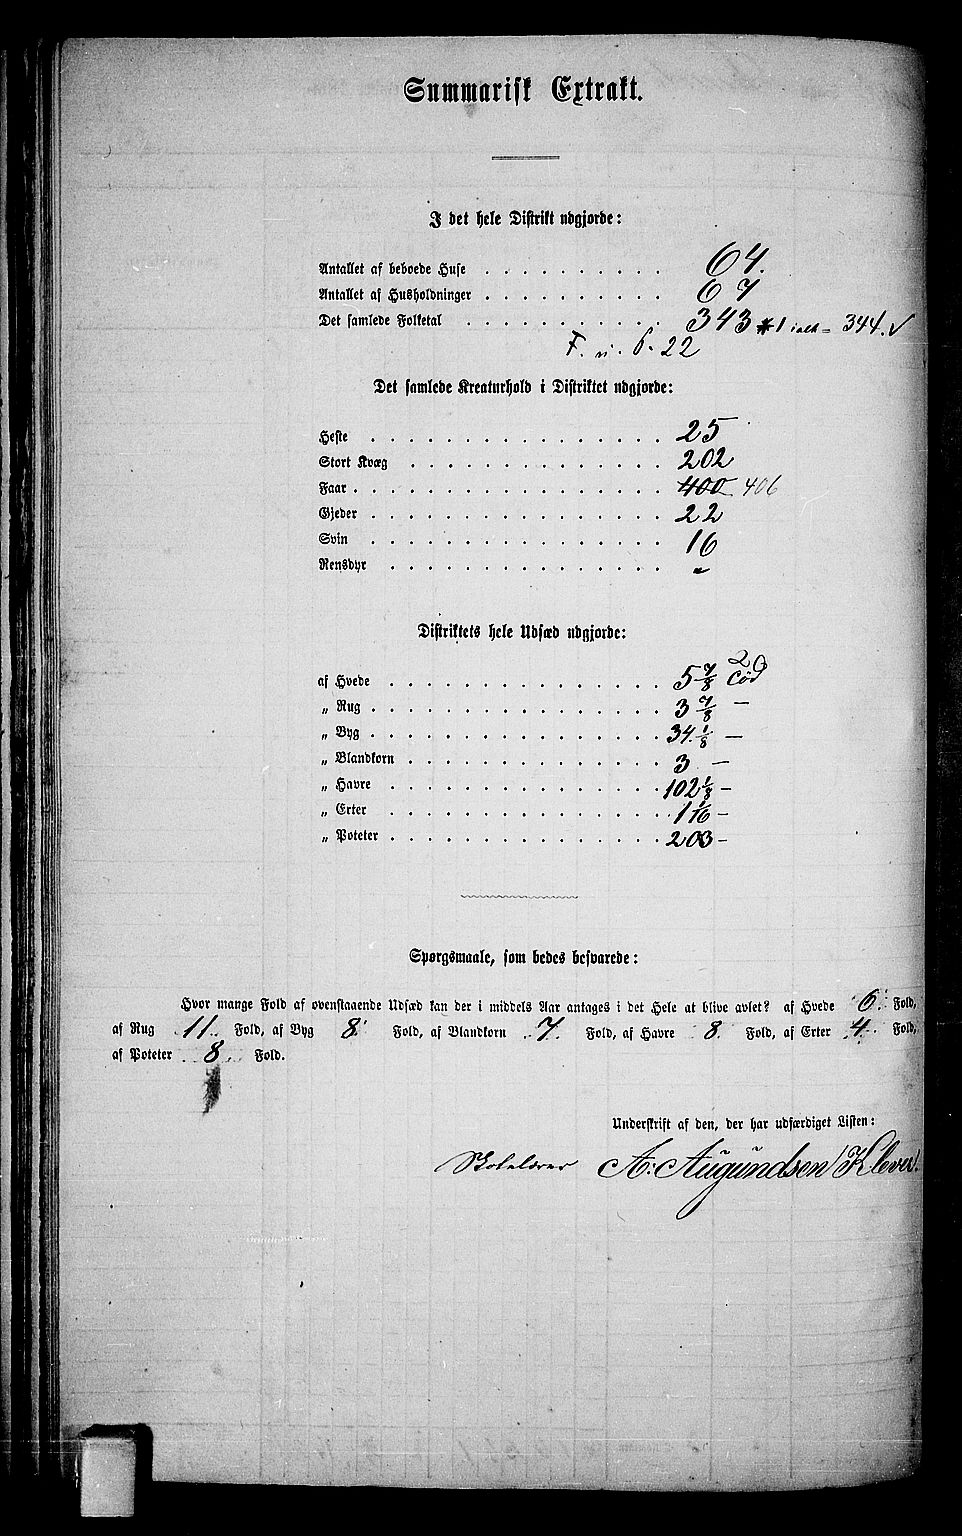 Summarisk Extrakt.
I det hele Distrikt udgjorde:
Antallet af beboede Huse . . . . . . . . . . 64.
Antallet af Husholdninger . . . . . . . . . . 67
Det samlede Folketal . . . . . . . . . . . 343 * 1 ialt = 344. ✓
F. v. 6. 22
Det samlede Kreaturhold i Distriktet udgjorde:
Heste . . . . . . . . . . . . . . . . 25
Stort Kvæg . . . . . . . . . . . . . . 202
Faar . . . . . . . . . . . . . . . . . 400 406
Gjeder . . . . . . . . . . . . . . . . 22
Svin . . . . . . . . . . . . . . . . 16
Rensdyr . . . . . . . . . . . . . . . "
Distriktets hele Udsæd udgjorde:
af Hvede . . . . . . . . . . . . . . . 5 7/8 Tød
„ Rug . . . . . . . . . . . . . . . . 3 7/8 —
„ Byg . . . . . . . . . . . . . . . . 34 1/8 —
„ Blandkorn . . . . . . . . . . . . . . 3 —
„ Havre . . . . . . . . . . . . . . . 102 1/8 —
„ Erter . . . . . . . . . . . . . . . 1 1/16 —
„ Poteter . . . . . . . . . . . . . . . 203 —
Spørgsmaale, som bedes besvarede:
Hvor mange Fold af ovenstaaende Udsæd kan der i middels Aar antages i det Hele at blive avlet? af Hvede 6. Fold,
af Rug 11. Fold, af Byg 8 Fold, af Blandkorn 7. Fold, af Havre 8. Fold, af Erter 4. Fold,
af Poteter 8. Fold.
Underskrift af den, der har udfærdiget Listen:
Skolelærer A. Augundsen /Klever/.